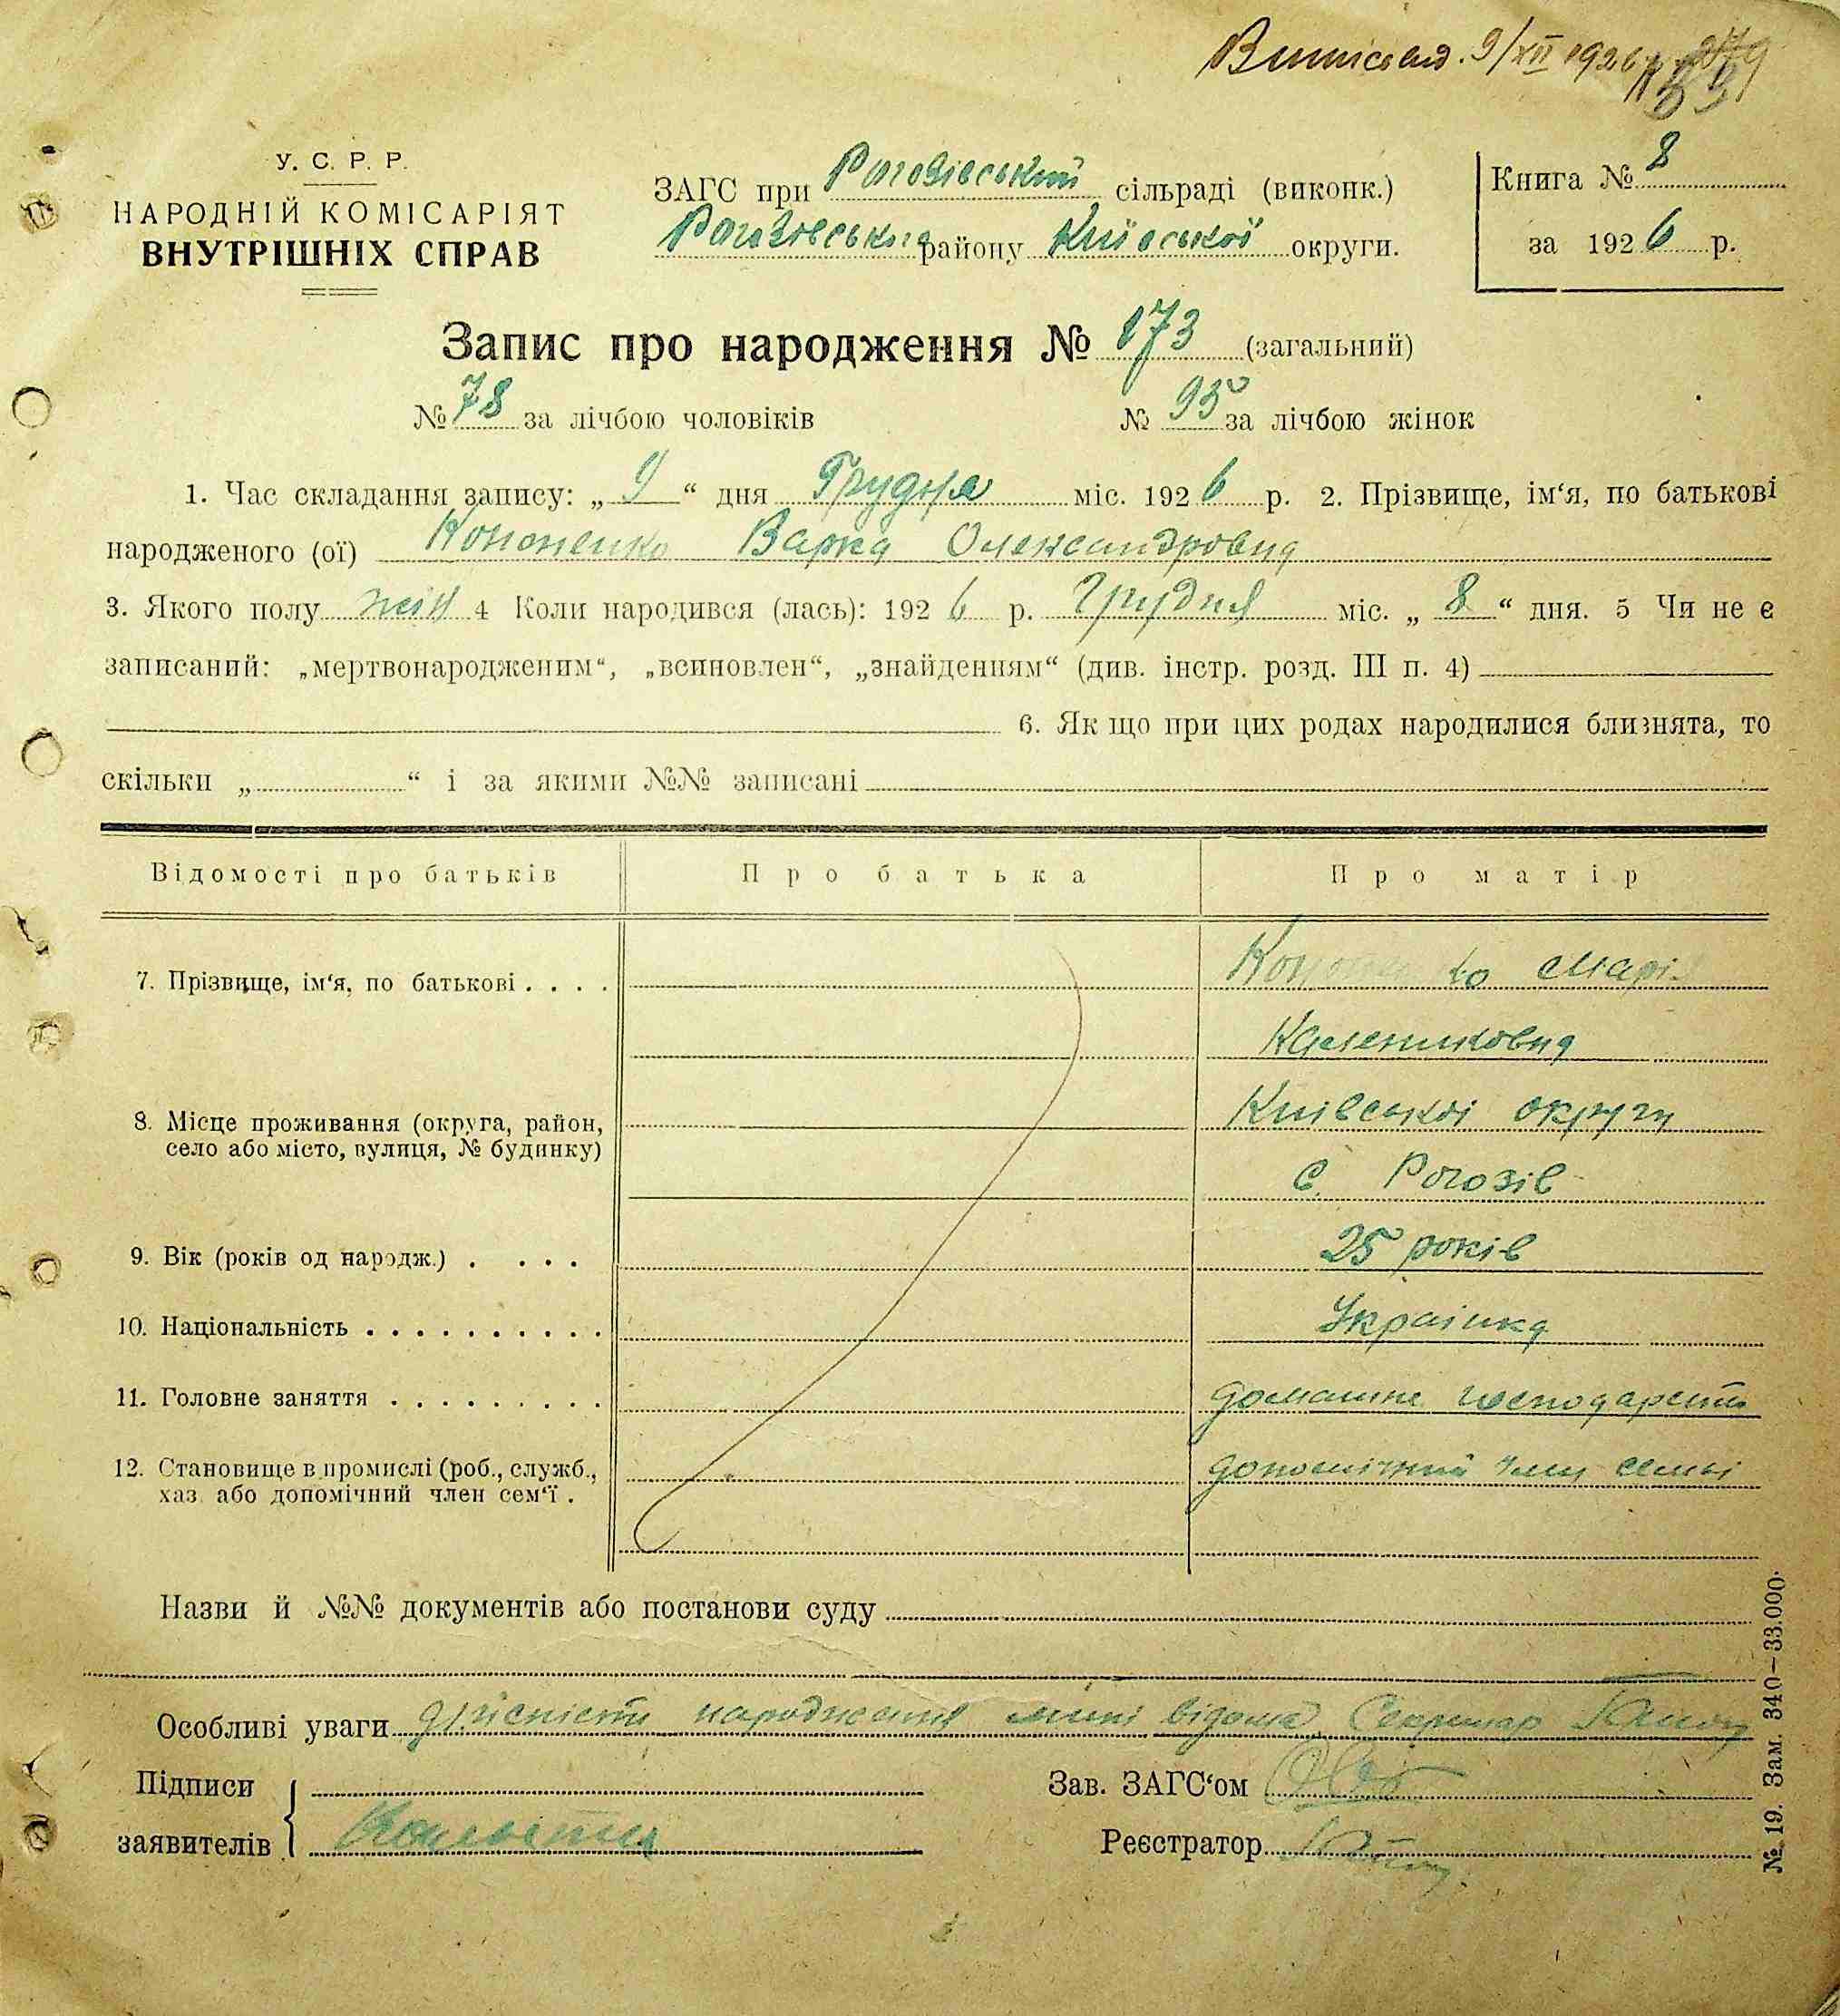 9/XII 1926
У. С. Р. Р.
НАРОДНІЙ КОМІСАРІЯТ
ВНУТРІШНІХ СПРАВ
ЗАГС при Рогозівський сільраді (виконк.)
Рогозівського району Київської округи.
Книга № 8
за 1926 р.
Запис про народження № 173 (загальний)
№ 78 за лічбою чоловіків № 95 за лічбою жінок
1. Час складання запису: „ 9 “ дня Грудня міс. 1926 р. 2. Прізвище, ім‘я, по батькові
народженого (ої) Кононенко Варка Олександровна
3. Якого полу жін 4 Коли народився (лась): 1926 р. Грудня міс. „ 8 “ дня. 5 Чи не є
записаний: „мертвонародженим“, „всиновлен“, „знайденням“ (див. інстр. розд. III п. 4)
6. Як що при цих родах народилися близнята, то
скільки „ “ і за якими №№ записані
Відомості про батьків Про батька Про матір
7. Прізвище, ім‘я, по батькові . . . . Кононенко Марія
Калениковна
8. Місце проживання (округа, район, Київської округи
село або місто, вулиця, № будинку)
с. Рогозів
9. Вік (років од народж.) . . . . 25 років
10. Національність . . . . . . . . . . Українка
11. Головне заняття . . . . . . . . . домашне господарств
12. Становище в промислі (роб., служб., допомічний член семьі
хаз. або допомічний член сем‘ї .
Назви й №№ документів або постанови суду
Особливі уваги дійсність народження мині відома Секретар
Підписи
заявителів
Зав. ЗАГС‘ом
Реєстратор
№ 19. Зам. 340–33.000.